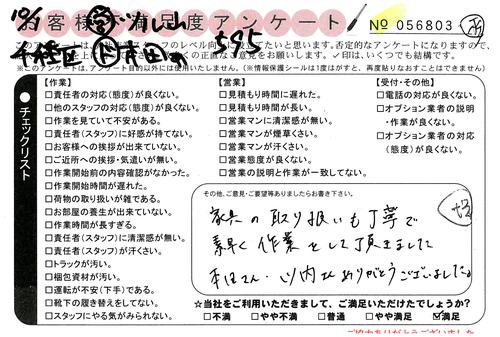 お客様満足度アンケート
№ 056803
585
千種区
※このアンケートは、アンケート目的以外には使用いたしません。(※情報保護シールは1度はがすと、再度貼りなおすことはできません)
●チェックリスト
【作業】
□責任者の対応(態度)が良くない。
□他のスタッフの対応(態度)が良くない。
□作業を見ていて不安がある。
□責任者(スタッフ)に好感が持てない。
□お客様への挨拶が出来ていない。
□ご近所への挨拶・気遣いが無い。
□作業開始前の内容確認がなかった。
□作業開始時間が遅れた。
□荷物の取り扱いが雑である。
□お部屋の養生が出来ていない。
□作業時間が長すぎる。
□責任者(スタッフ)に清潔感が無い。
□責任者(スタッフ)が汗くさい。
□トラックが汚い。
□梱包資材が汚い。
□運転が不安(下手)である。
□靴下の履き替えをしてない。
□スタッフにやる気がみられない。
【営業】
□見積もりに遅れた。
□見積もり時間が長い。
□営業マンに清潔感が無い。
□営業マンが煙草くさい。
□営業マンが汗くさい。
□営業態度が良くない。
□営業の説明と作業が一致してない。
【受付・その他】
□電話の対応が良くない。
□オプション業者の説明
・作業が良くない。
□オプション業者の対応
(態度)が良くない。
その他、ご意見・ご要望等ありましたらお書き下さい。
家具の取り扱いも丁寧で
素早く作業をして頂きました
本田さん・以内さんありがとうございました。
☆当社をご利用いただきまして、ご満足いただけたでしょうか?
□不満 □やや不満 □普通 □やや満足 ☑満足
ご協力ありがとうございました